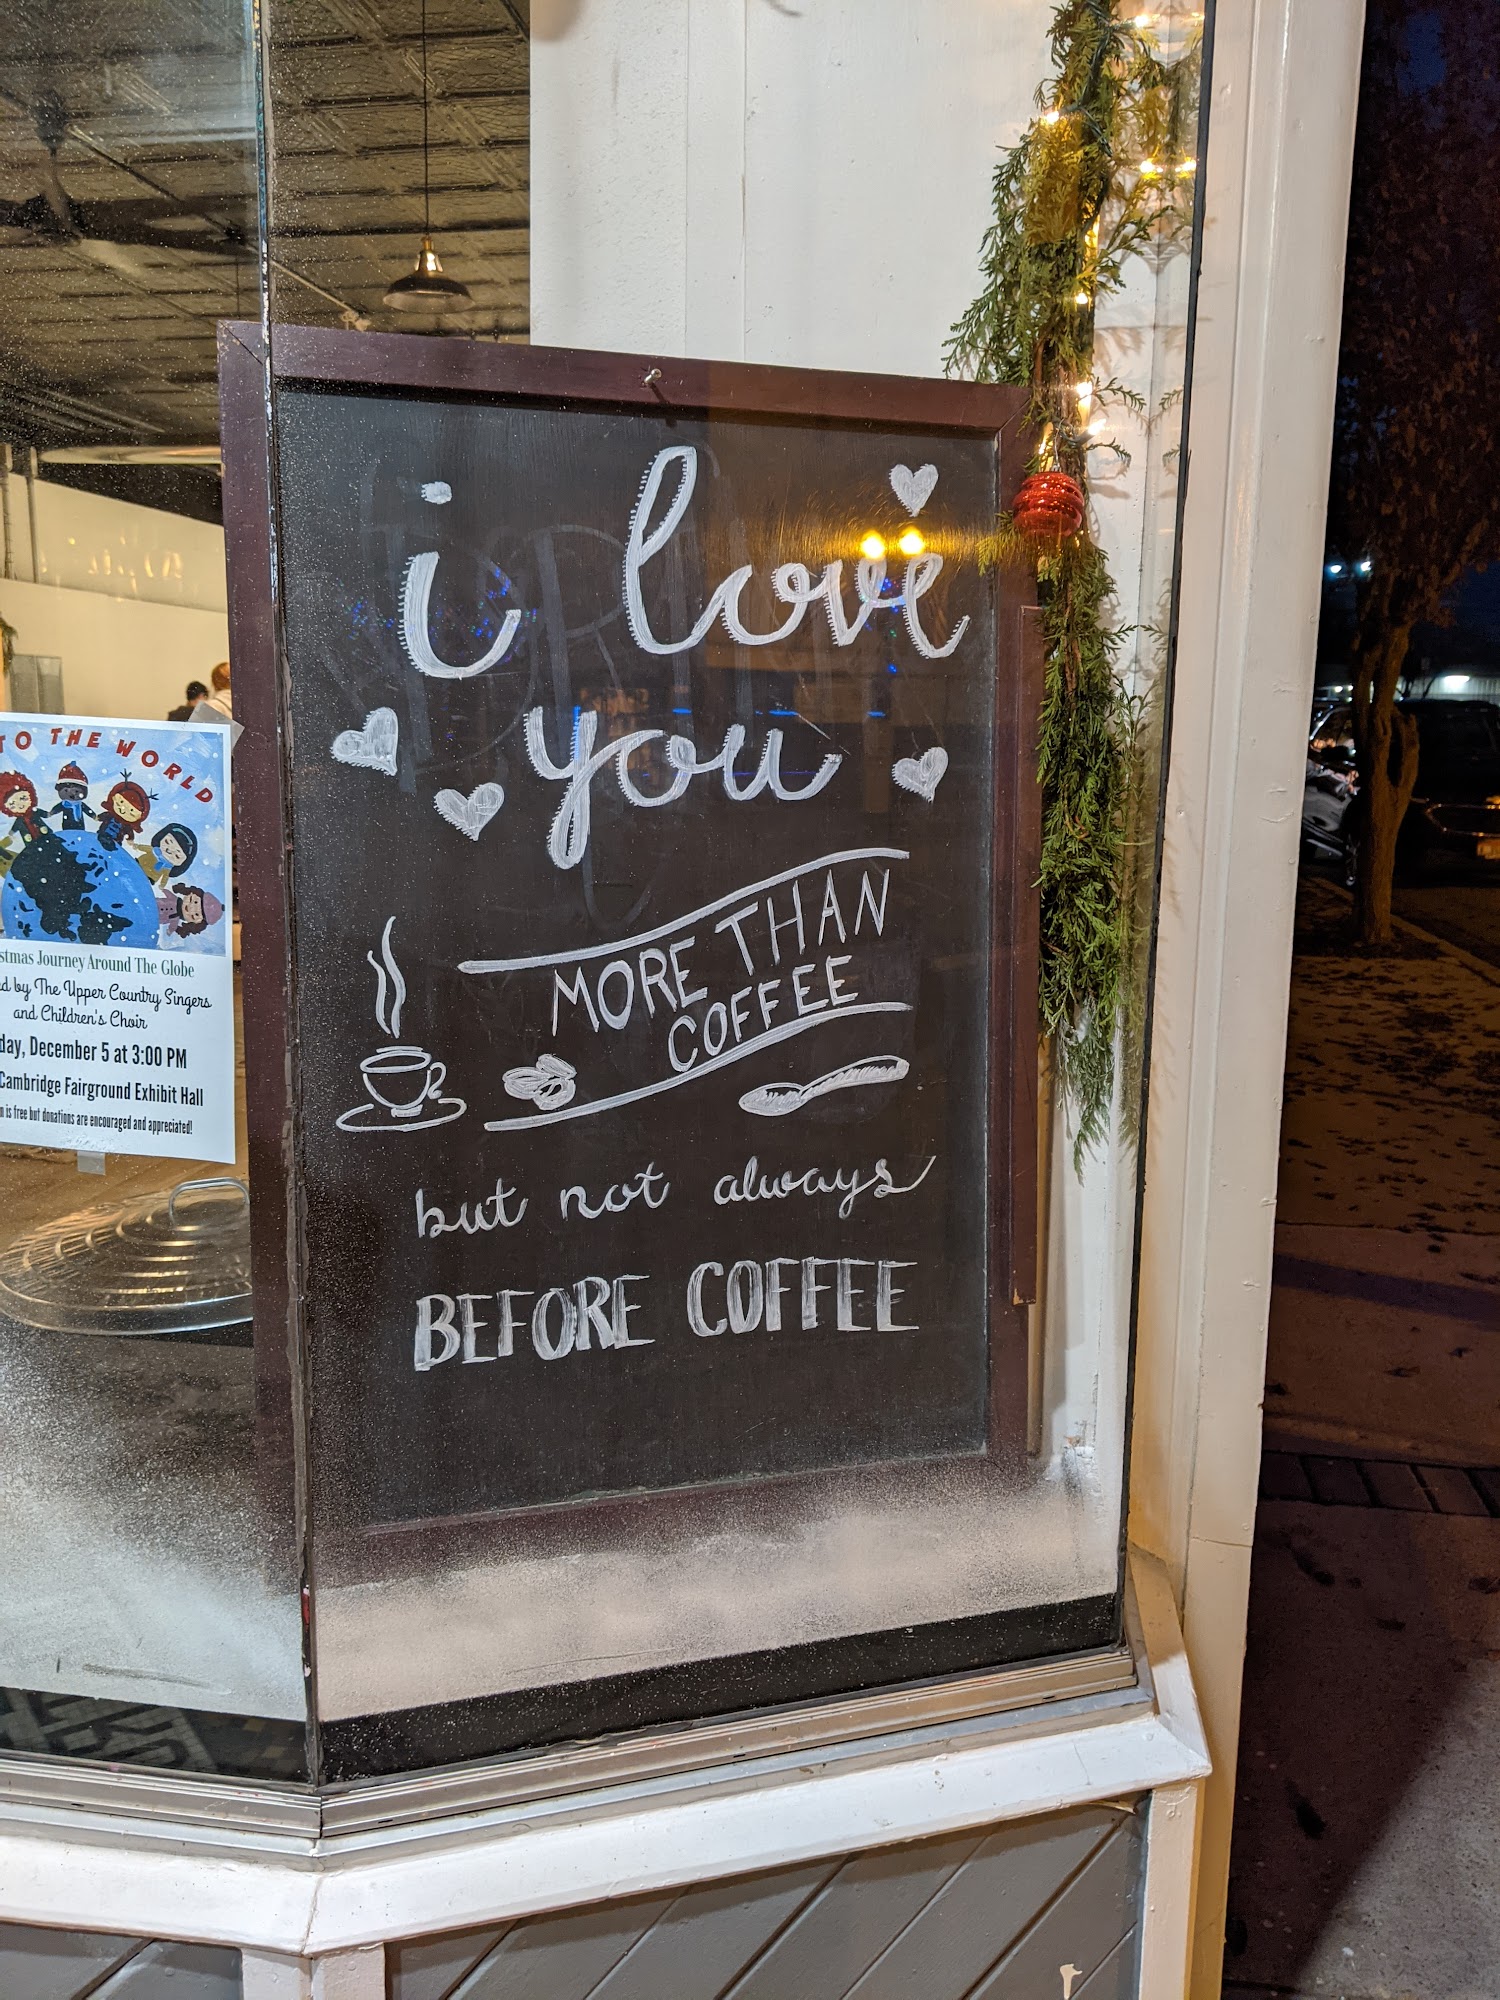 i love
you
MORE THAN
COFFEE
but not always
BEFORE COFFEE
TO THE WORLD
Journey Around The Globe
by The Upper Country Singers
and Children's Choir
December 5 at 3:00 PM
Cambridge Fairground Exhibit Hall
is free but donations are encouraged and appreciated!